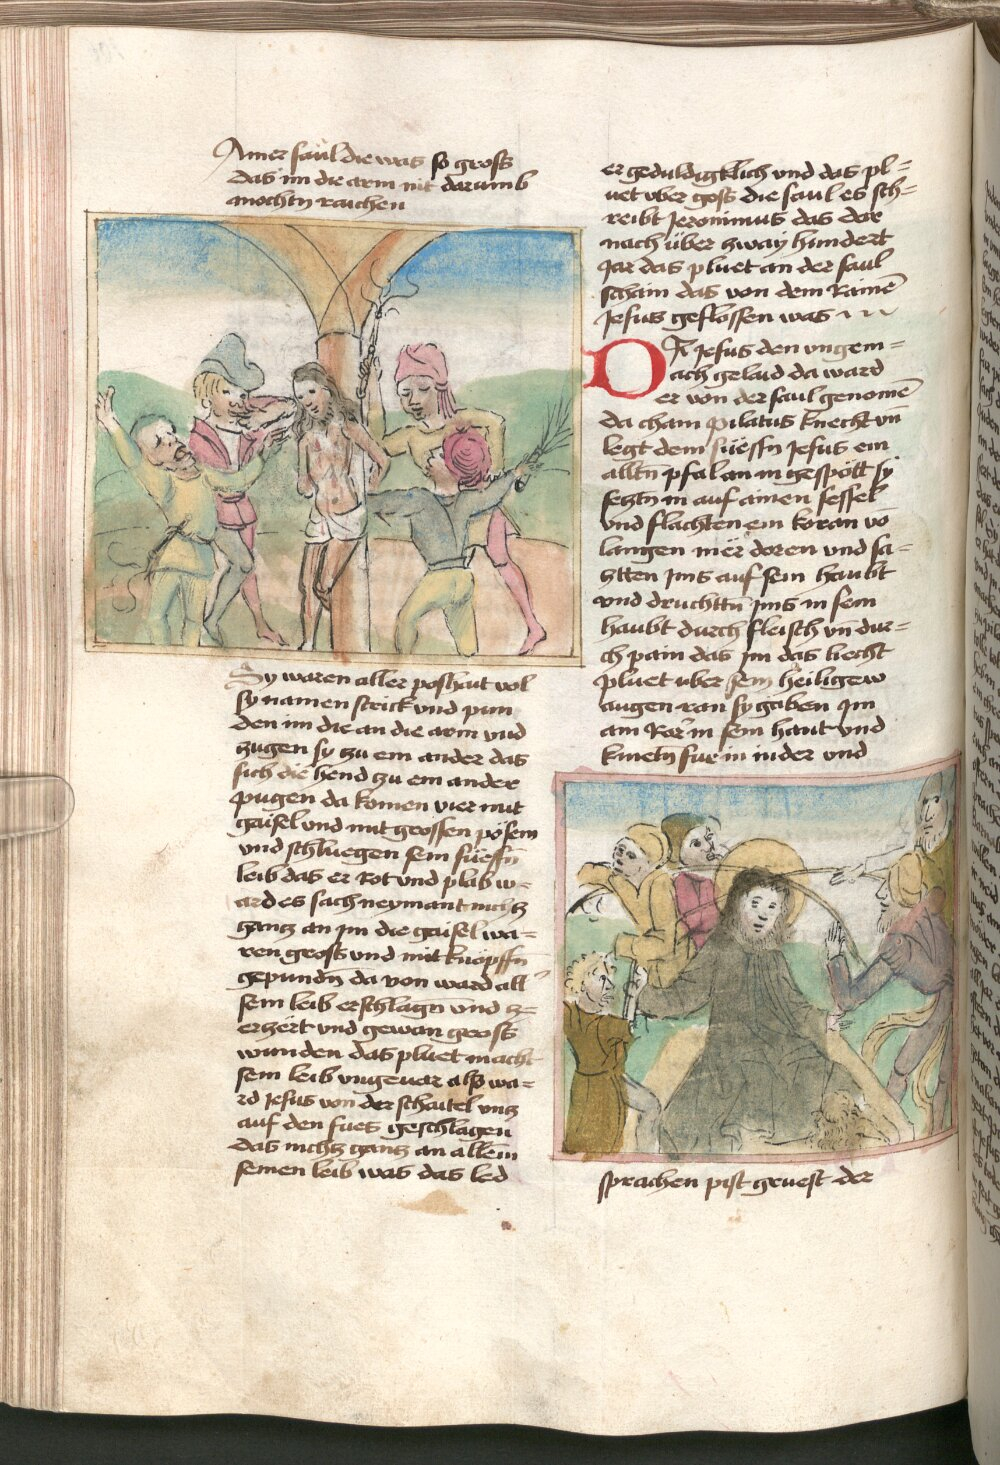 Ainer saul die was so gross
das im die arm nit darumb
mochtn raichen
Sy waren aller poshait vol
sy namen strick vnd pun
den im die an die arm vnd
zugen sy zu em ander das
sich die hend zu em ander
pugen da komen vier mit
gaisel vnd mit grossen pösem
vnd schluegen sein süessn
leib das er rot vnd plab w=
ard es sach neymant nichtz
gantz an im die gaisel wa=
ren gross vnd mit knöpffn
gepundn da von ward all
sem leib erschlagn vnd z=
erzert vnd gewan gross
wunden das pluet macht
sem leib vngeuar also wa=
rd Jesus von der schaitel vntz
auf den fues geschlagen
das nichtz gantz an allem
semen leib was das led
er geduldigklich vnd das pl=
uet vber goss die saul es sch=
reibt Jeronimus das dar
nach über zway hundert
Jar das pluet an der saul
schain das von dem Rainē
Jesus geflossen was
DA Jesus den vngem=
ach gelaid da ward
er von der saul genomē
da cham Pilatus knecht vn̄
legt dem süessn Jesus em
alltn pfal an in gespött sy
setztn in auf ainen sessel
vnd flachten em koran vō
langen mer doren vnd sa=
tzten Ims auf sem haubt
vnd druchttn Ims in sem
haubt durch fleisch vn̄ dur=
ch pain das im das liecht
pluet vber sem heiligew
augen ran sy gaben Im
am Ror in sem hant vnd
knietn fur in nider vnd
sprachen pist gruest der